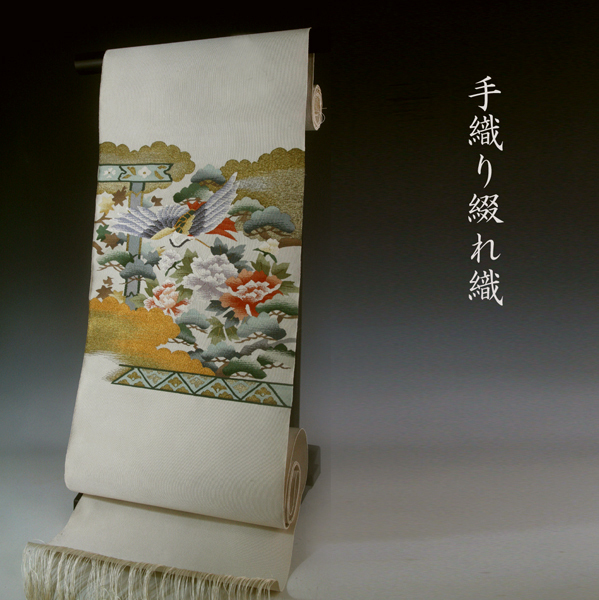 手織り綴れ織